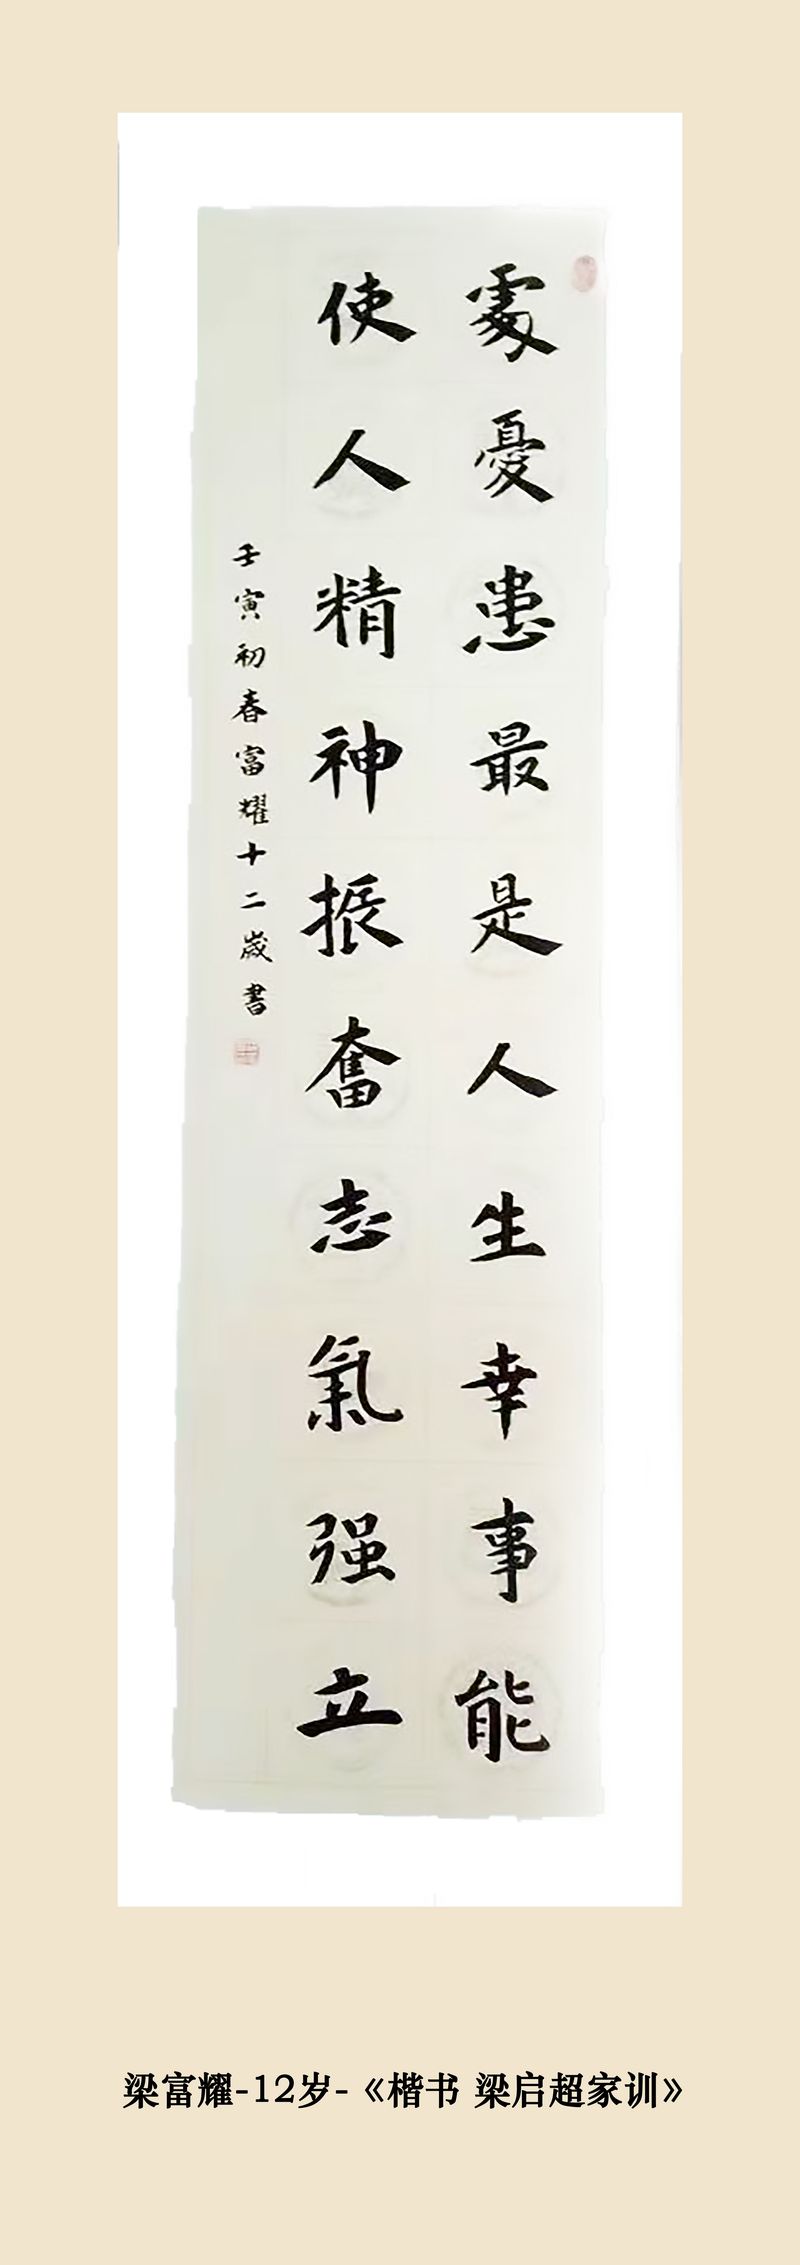 處憂患最是人生幸事能
使人精神振奮志氣强立
壬寅初春富耀十二歲書
梁富耀-12岁-《楷书 梁启超家训》